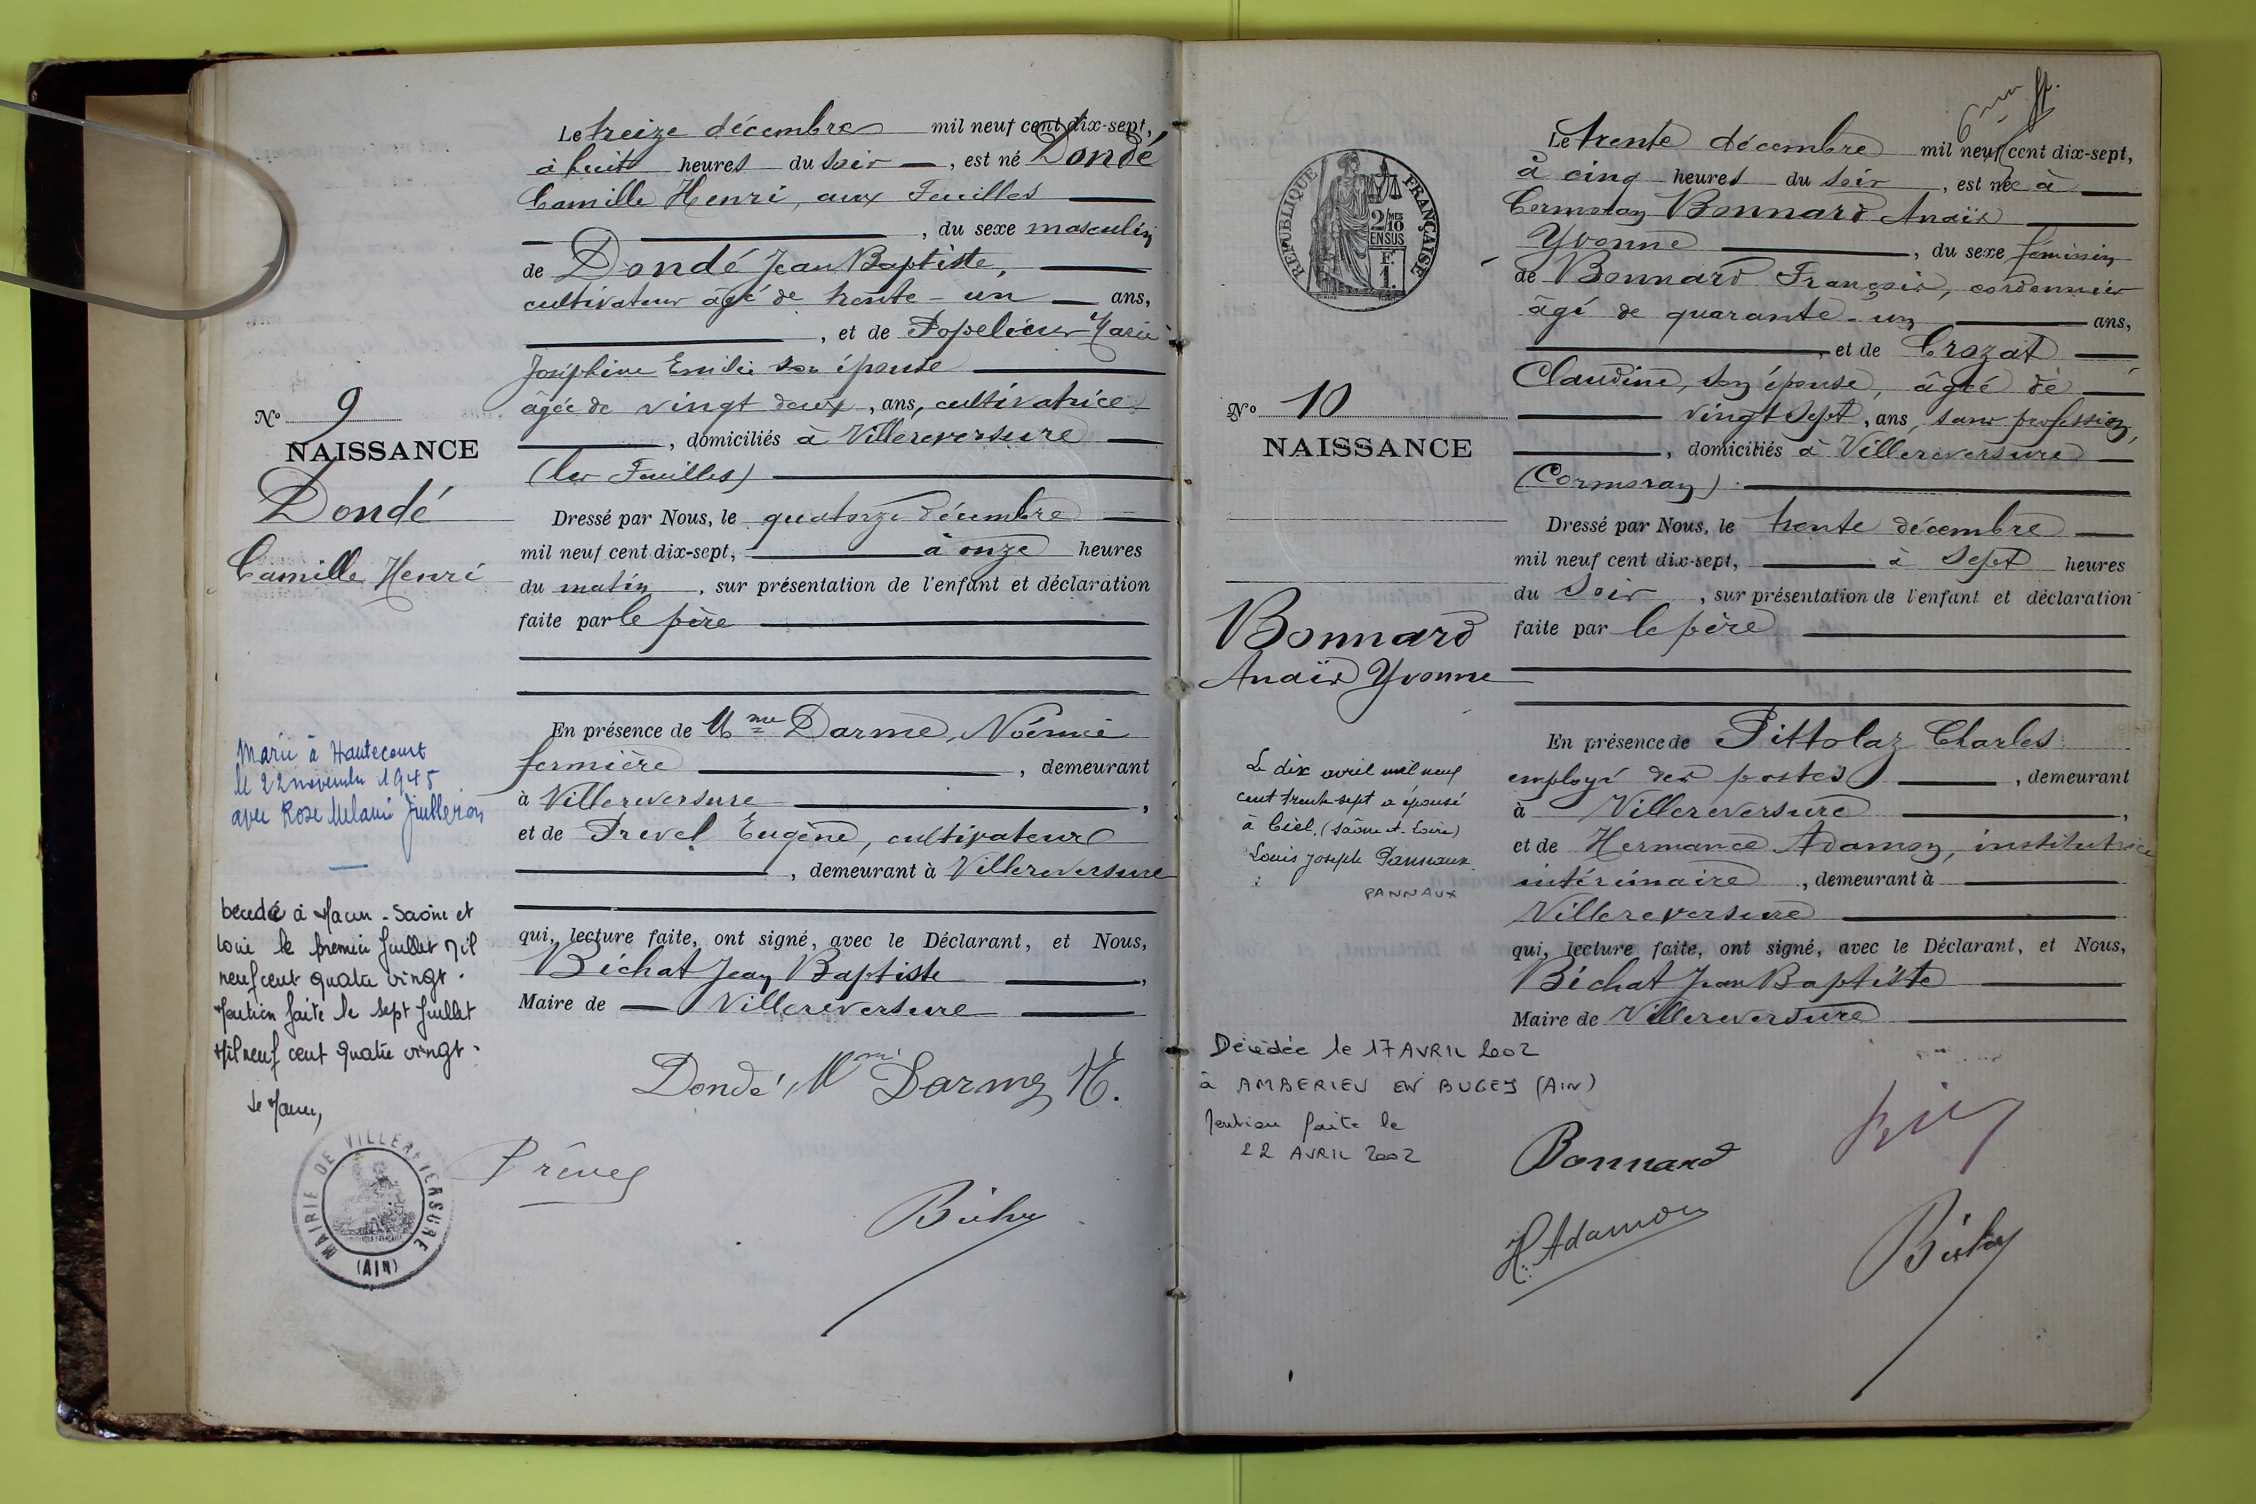 Le treize décembre mil neuf cent dix-sept,
à huit heures du soir, est né Dondé
Camille Henri, aux Feuilles
, du sexe masculin
de Dondé Jean Baptiste,
cultivateur âgé de trente-un ans,
, et de Popelin Marie
Joséphine Emilie son épouse
âgée de vingt deux, ans, cultivatrice
, domiciliés à Villereversure
(les Feuilles)
Dressé par Nous, le quatorze décembre
mil neuf cent dix-sept, à onze heures
du matin, sur présentation de l'enfant et déclaration
faite par le père
En présence de Mme Darme, Noémie
fermière, demeurant
à Villereversure,
et de Prevel Eugène, cultivateur
, demeurant à Villereversure
qui, lecture faite, ont signé, avec le Déclarant, et Nous,
Béchat Jean Baptiste,
Maire de Villereversure
Dondé Mme Darme N.
Béchat
No 9
NAISSANCE
Dondé
Camille Henri
Marié à Hautecourt
le 22 novembre 1945
avec Rose Mélanie
Décédé à Macon - Saône et
Loire le premier Juillet Mil
neuf cent quatre vingt.
Mention faite le sept Juillet
Mil neuf cent quatre vingt.
Le Maire,
MAIRIE DE VILLEREVERSURE
(AIN)
RÉPUBLIQUE FRANÇAISE
2/10 MES
EN SUS
1 F.
No 10
NAISSANCE
Bonnard
Anaïs Yvonne
Le dix avril mil neuf
cent trente-sept a épousé
à Ciel. (Saône-et-Loire)
Louis Joseph Pannaux
PANNAUX
Décédée le 17 AVRIL 2002
à AMBERIEU EN BUGEY (AIN)
Mention faite le
22 AVRIL 2002
Le trente décembre mil neuf cent dix-sept,
à cinq heures du soir, est née à
Cormoray Bonnard Anaïs
Yvonne, du sexe féminin
de Bonnard François, cordonnier
âgé de quarante-un ans,
et de Crozat
Claudine, son épouse, âgée de
vingt sept, ans, sans profession,
, domiciliés à Villereversure
(Cormoray).
Dressé par Nous, le trente décembre
mil neuf cent dix-sept, à sept heures
du soir, sur présentation de l'enfant et déclaration
faite par le père
En présence de Pittolaz Charles
employé des postes, demeurant
à Villereversure,
et de Hermance Adamon, institutrice
intérimaire, demeurant à
Villereversure
qui, lecture faite, ont signé, avec le Déclarant, et Nous,
Béchat Jean Baptiste
Maire de Villereversure
Bonnard
H. Adamon
Béchat